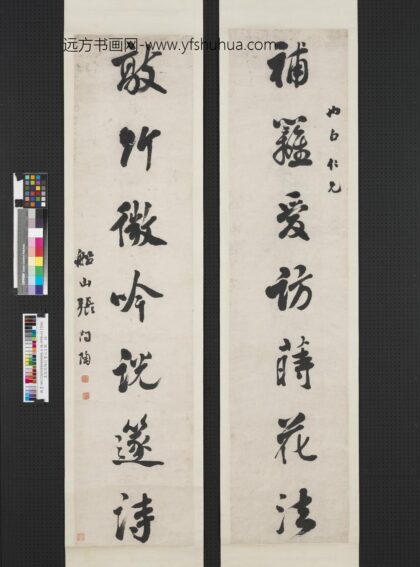 远方书画网-www.yfshuhua.com
補籬爰訪蒔花法
仁兄
敲竹微吟說邃詩
船山張問陶